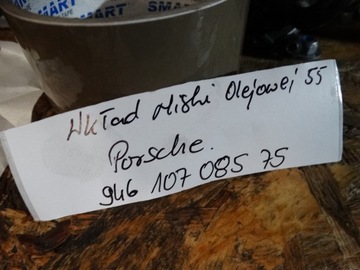 SMART
SMART
Wkład miski Olejowej 55
Porsche.
946 107 085 75